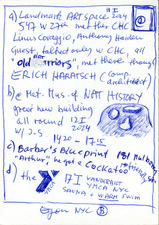 a) Landmark ART space I say
547 W 27th met there CHC
Linus Coraggio, Anthony Haden-
Guest, talked today w/ CHC, all
"old ARTrriors", met there through
ERICH HARATSCH (comp.
architect
b) @ Met. Mus. of NAT HISTORY
great new building
all round 12 I
w/ J.S 2024
1420 – 17 15
c) Barber's Blueprint 181 Mulberry
"Arthur" he got a COCKATOO
d) the Y 17 I VANDERBILT
YMCA NYC
SAUNA + WARM SWIM
NYC